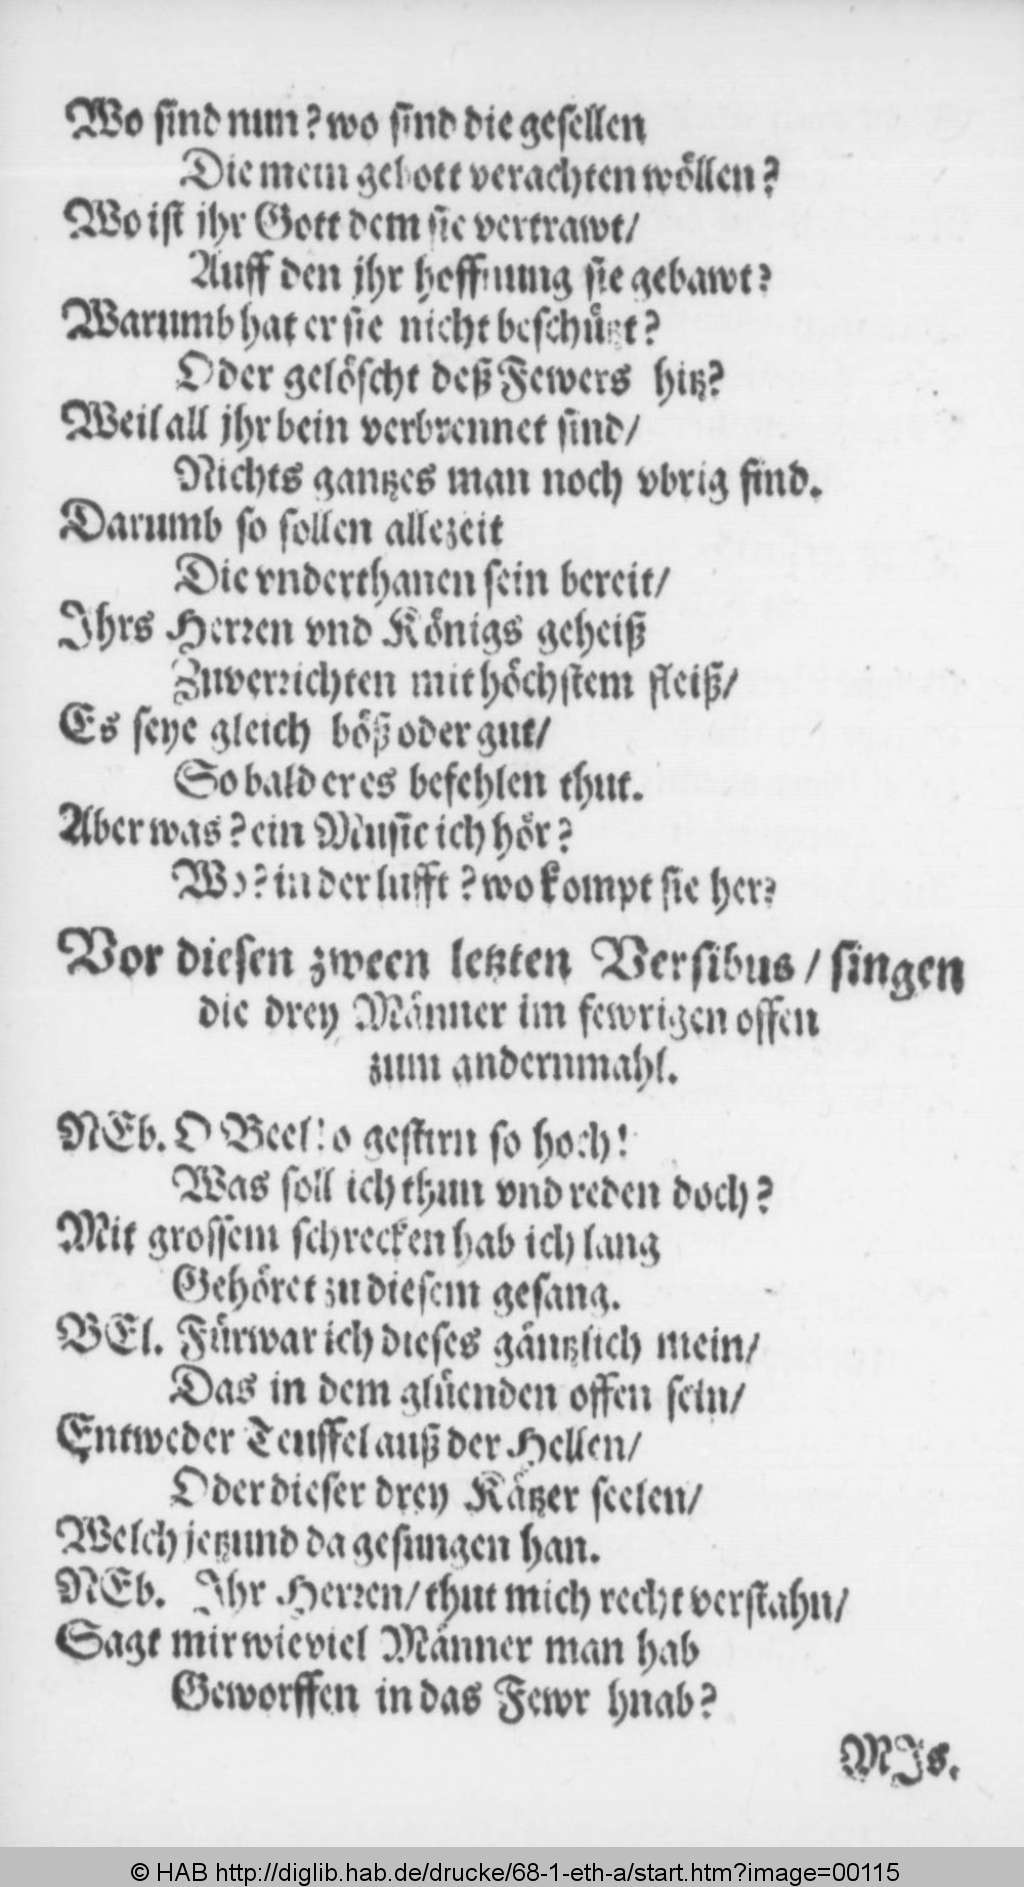 Wo sind nun? wo sind die gesellen
Die mein gebott verachten wöllen?
Wo ist jhr Gott dem sie vertrawt/
Auff den jhr hoffnung sie gebawt?
Warumb hat er sie nicht beschützt?
Oder gelöscht deß Fewers hitz?
Weil all jhr bein verbrennet sind/
Nichts gantzes man noch vbrig find.
Darumb so sollen allezeit
Die vnderthanen sein bereit/
Ihrs Herren vnd Königs geheiß
Zuverrichten mit höchstem fleiß/
Es seye gleich böß oder gut/
So bald er es befehlen thut.
Aber was? ein Music ich hör?
Wo? in der lufft? wo kompt sie her?
Vor diesen zween letzten Versibus / singen
die drey Männer im fewrigen offen
zum andernmahl.
NEb. O Beel! o gestirn so hoch!
Was soll ich thun vnd reden doch?
Mit grossem schrecken hab ich lang
Gehöret zu diesem gesang.
BEl. Fürwar ich dieses gäntzlich mein/
Das in dem glüenden offen sein/
Entweder Teuffel auß der Hellen/
Oder dieser drey Kätzer seelen/
Welch jetzund da gesungen han.
NEb. Ihr Herren/ thut mich recht verstahn/
Sagt mir wie viel Männer man hab
Geworffen in das Fewr hnab?
MIs.
© HAB http://diglib.hab.de/drucke/68-1-eth-a/start.htm?image=00115